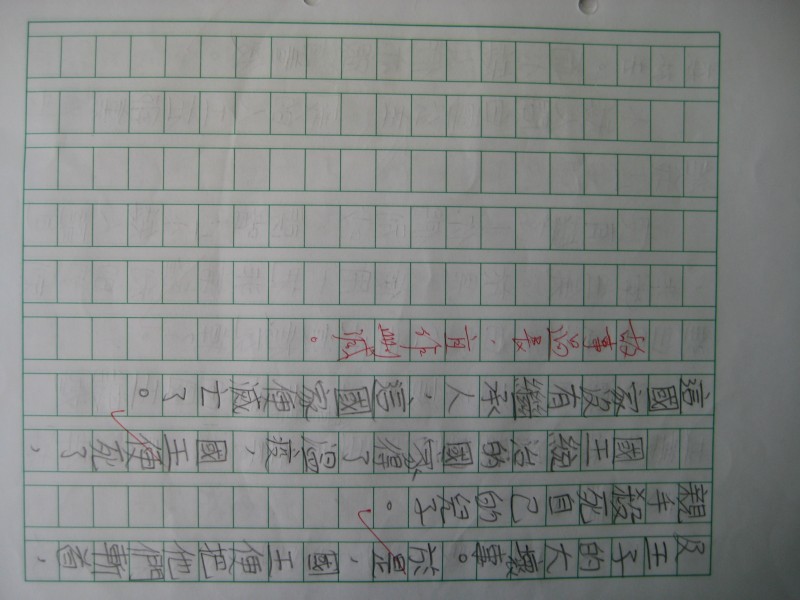 及王子的大壞事。於是，國王便把他們斬首，
親手殺死自己的子。
國王統治的國家爆了溫疫，國王便死了，
這國家沒有繼承人，這國家便滅亡了。
故事過長，宜作刪減。